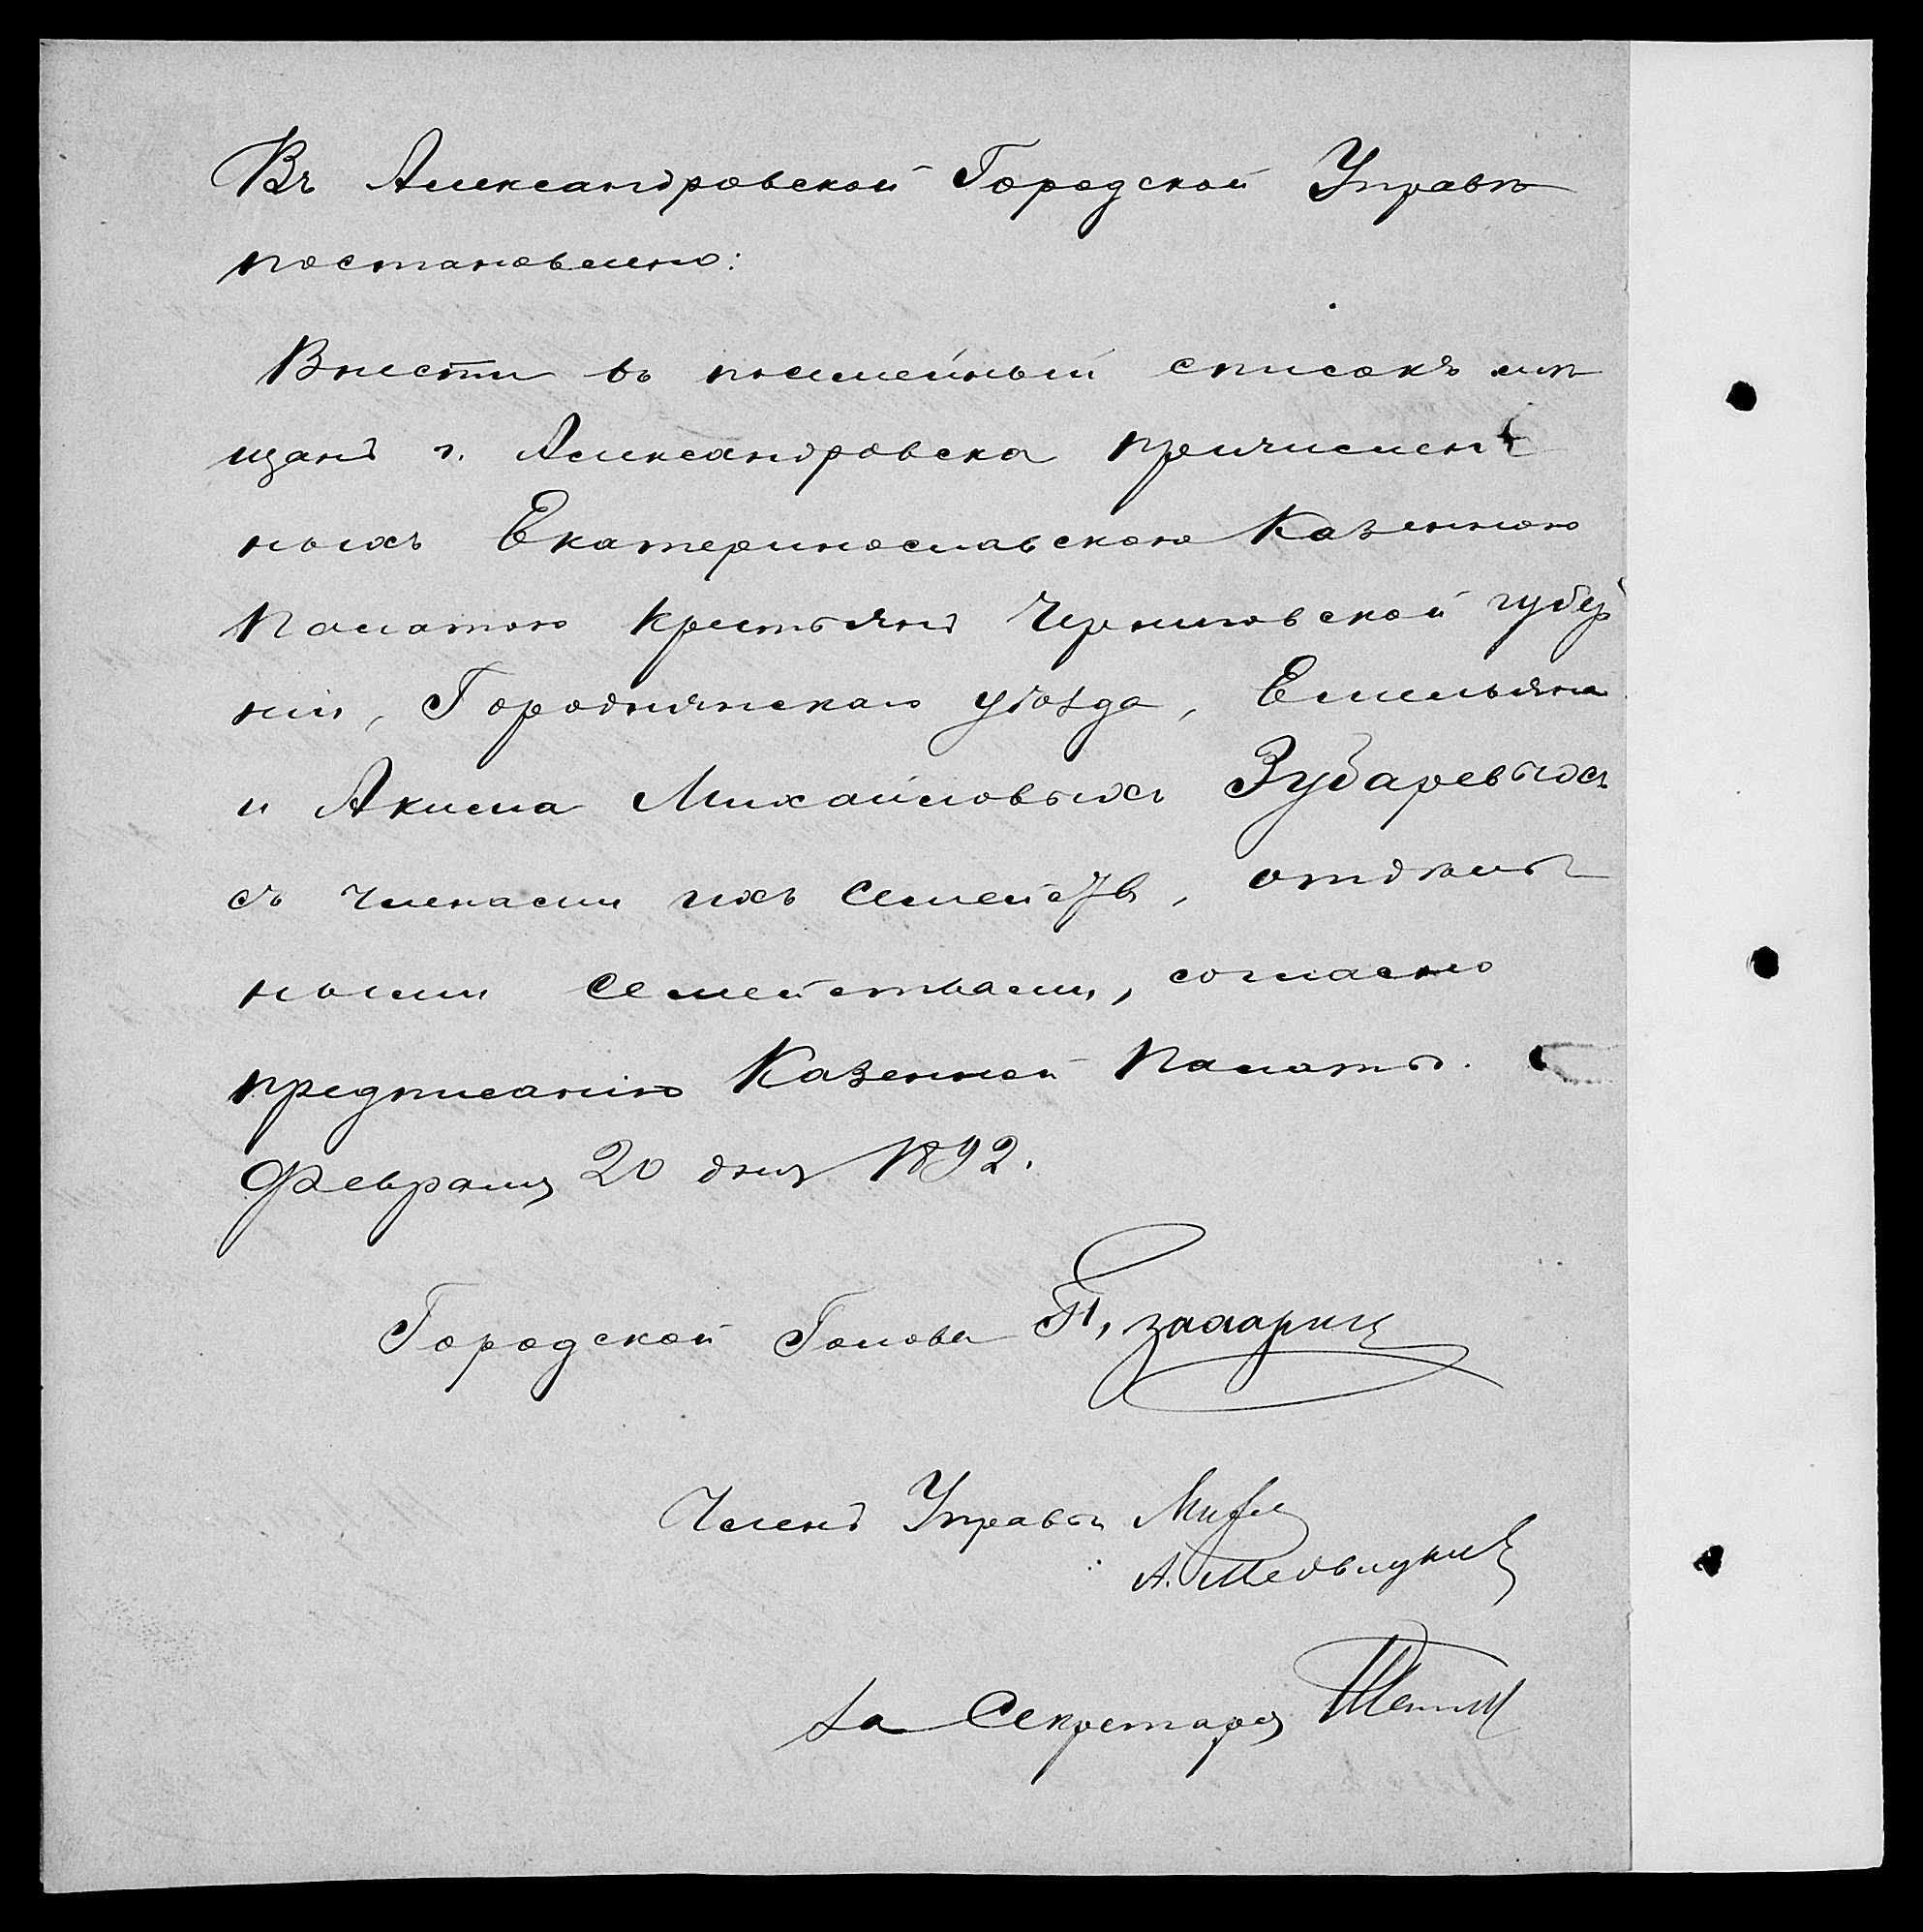 Въ Александровской Городской Управѣ
постановлено:
Внести въ посемейный списокъ мѣ
щанъ г. Александровска причислен
ныхъ Екатеринославскою Казенною
Палатою крестьянъ Черниговской губер
ніи, Городнянскаго уѣзда, Емельяна
и Акима Михайловыхъ Зубаревыхъ
съ членами ихъ семействъ, отдѣль
ными семействами, согласно
предписанію Казенной Палаты.
Февраля 20 дня 1892.
Городской Голова П. Захарин
Членъ Управы
А. Медвицкий
За Секретаря